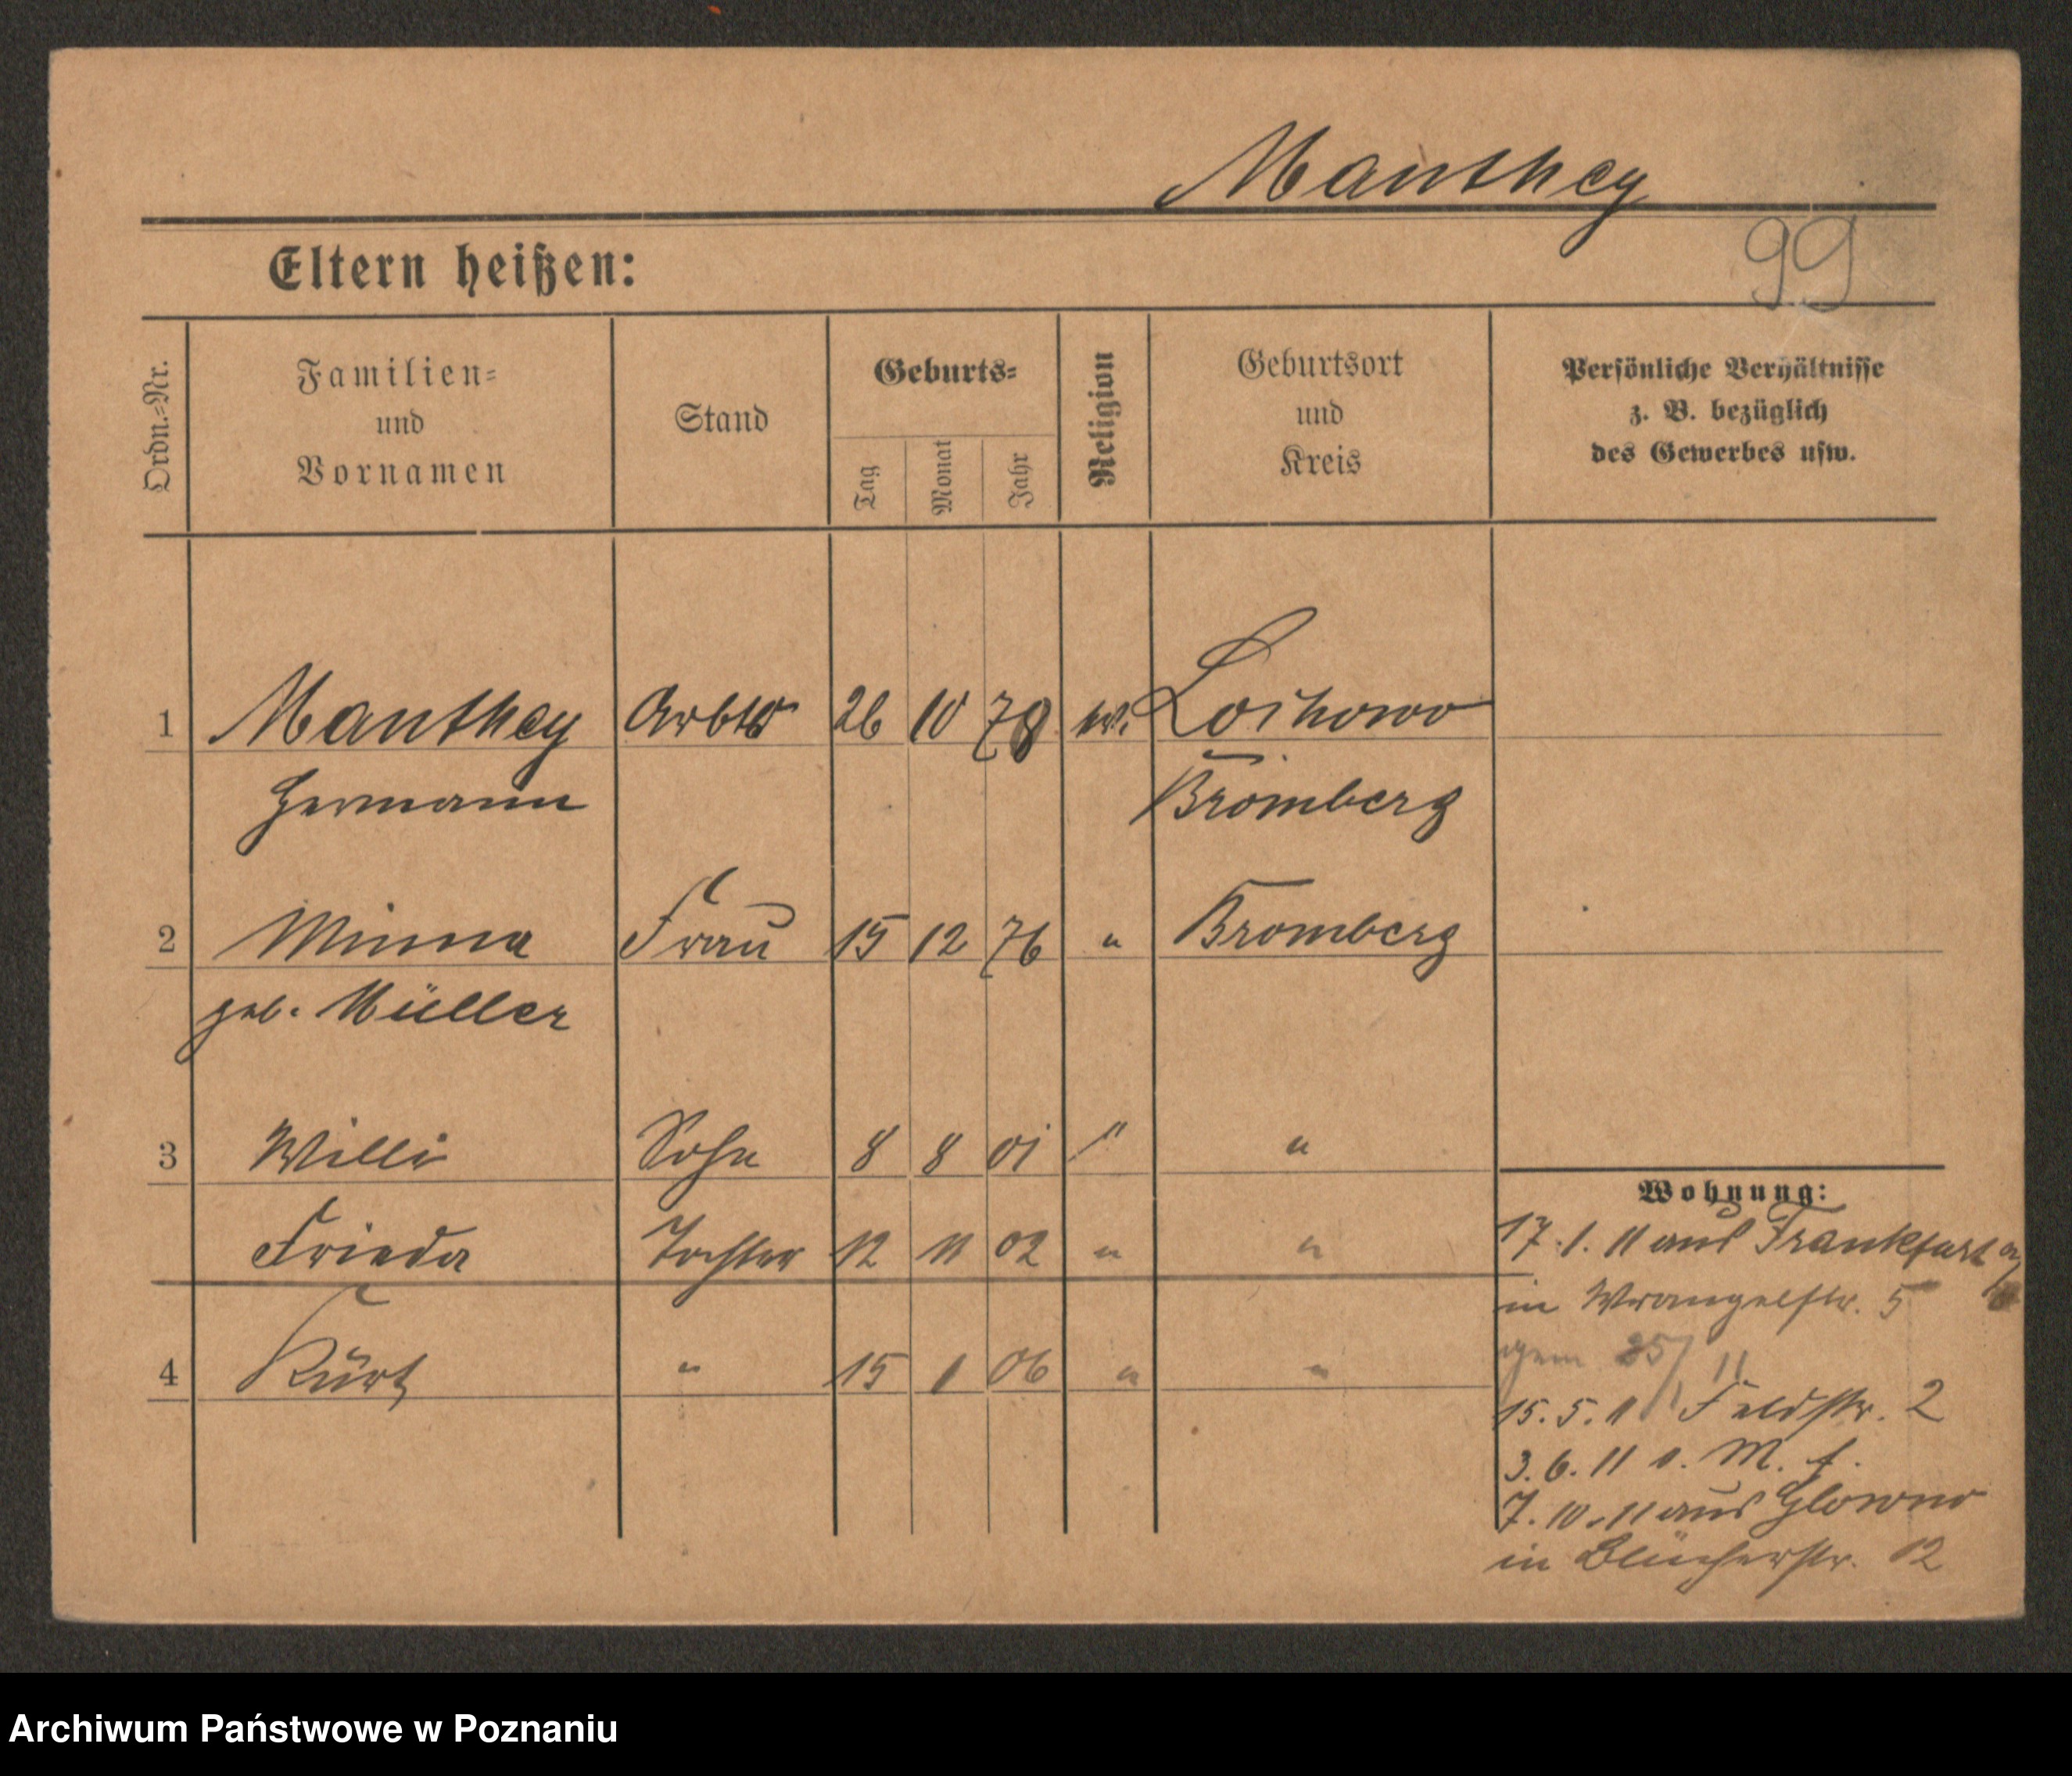 Manthey
99
Eltern heißen:
Ordn.=Nr.
Familien=
und
Vornamen
Stand
Geburts=
Tag
Monat
Jahr
Religion
Geburtsort
und
Kreis
Persönliche Verhältnisse
z. B. bezüglich
des Gewerbes usw.
1 Manthey Arbtr 26 10 78 ev. Lochowo
Hermann Bromberg
2 Minna Frau 15 12 76 " Bromberg
geb. Müller
3 Willi Sohn 8 8 01 " "
Wohnung:
Frieda Tochter 12 11 02 " "
17.1.11 aus Frankfurt a/
in Wrangelstr. 5
gem 25/1 11
4 Kurt " 15 1 06 " "
15.5.11 Feldstr. 2
3.6.11 v. M.
7.10.11 aus Glowno
in Blücherstr. 12
Archiwum Państwowe w Poznaniu